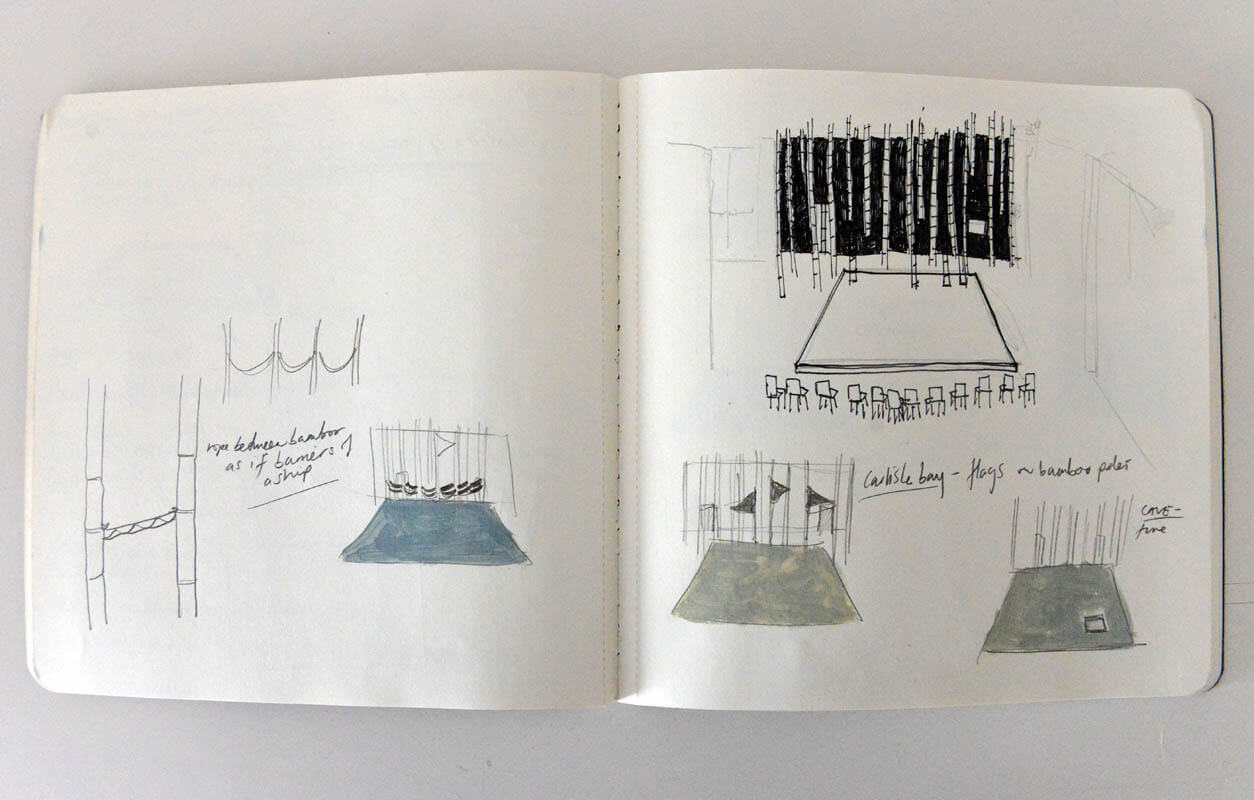 rope between bamboo
as if barriers of
a ship
Carlisle bay - flags on bamboo poles
CAVE -
fire